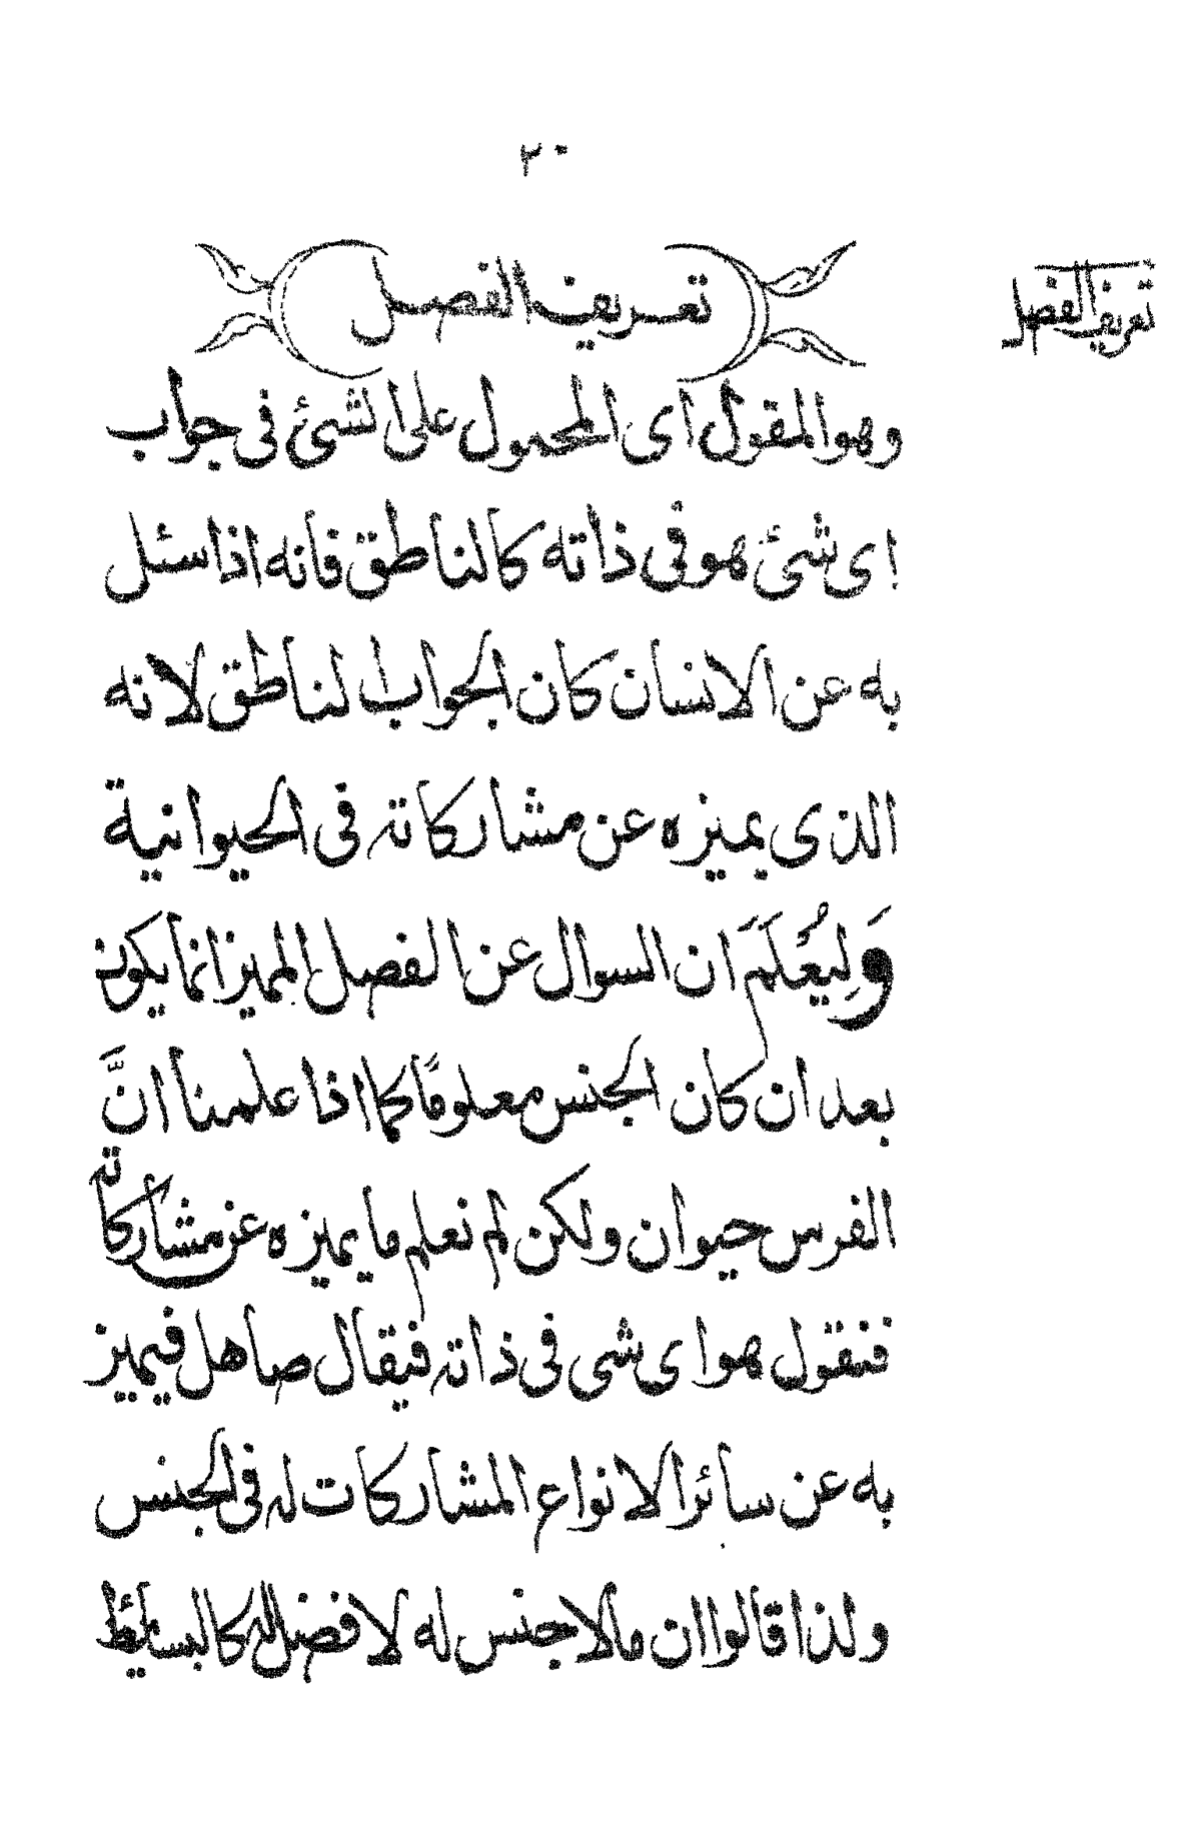 ٢٠
تعريف الفصل
تعريف الفصل
وهو المقول اى المحمول على الشئ فى جواب
اى شئ هو فى ذاته كالناطق فانه اذا سئل
به عن الانسان كان الجواب الناطق لانه
الذى يميزه عن مشاركاته فى الحيوانية
وَلِيُعْلَمَ ان السوال عن الفصل المميز انما يكون
بعد ان كان الجنس معلومًا كما اذا علمنا انَّ
الفرس حيوان ولكن لم نعلم ما يميزه عن مشاركاته
فنقول هو اى شى فى ذاته فيقال صاهل فيميز
به عن سائر الانواع المشاركات له فى الجنس
ولذا قالوا ان مالا جنس له لا فصل له كالبسائط